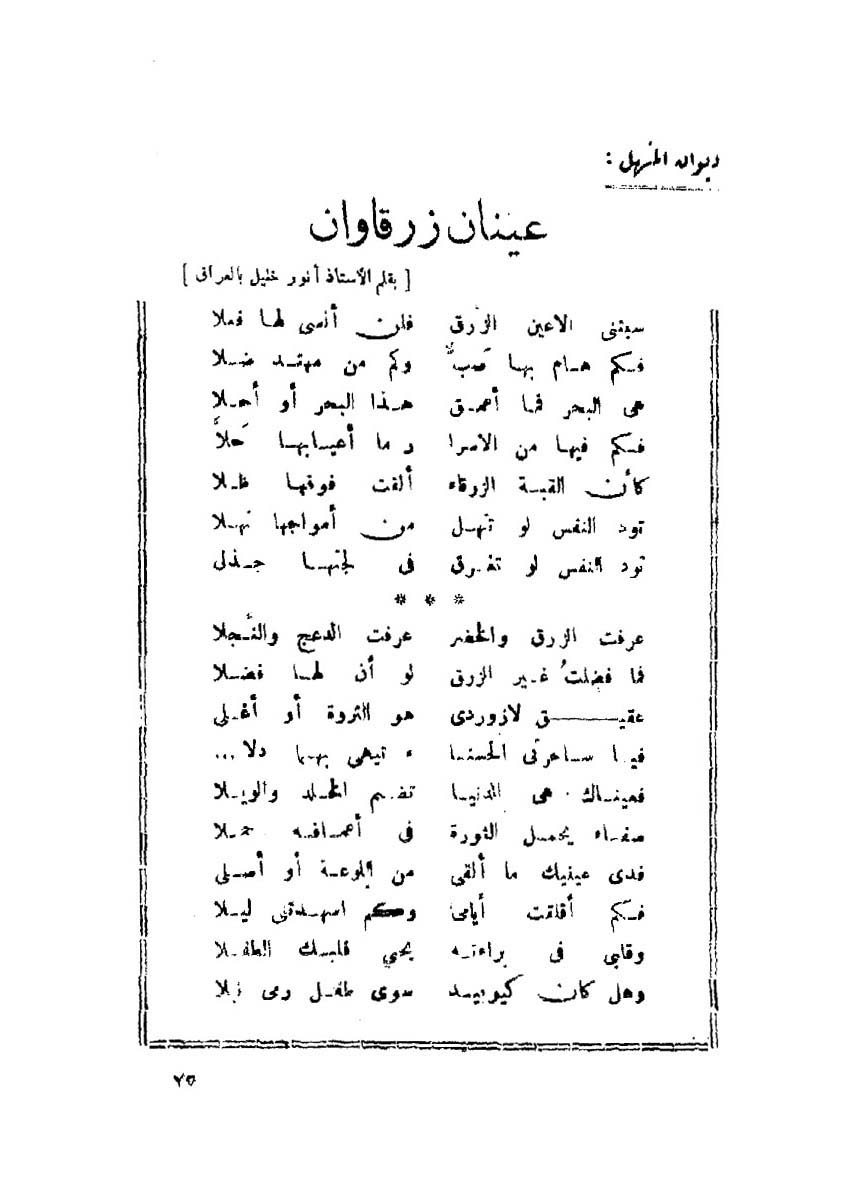 ديوان المنهل :
عينان زرقاوان
[ بقلم الأستاذ أنور خليل بالعراق ]
سبتنى الاعين الزرق فلن أنسى لها فعلا
فكم هام بها صبٌّ وكم من مهتد ضلا
هى البحر فما أعمق هذا البحر أو أحلا
فكم فيها من الاسرا ر ما أعيابها حَلاًّ
كأن القبة الزرقاء ألقت فوقها ظلا
تود النفس لو تنهل من أمواجها نهلا
تود النفس لو تغرق فى لجتها جذلى
* * *
عرفت الزرق والخضر عرفت الدعج والنُّجلا
فما فضلتُ غير الزرق لو أن لها فضلا
عقيق لازوردى هو الثروة أو أغلى
فيا ساحرتى الحسنا ء تيهى بهما دلا ...
فعيناك هى الدنيا تضم الخلد والويلا
صفاء يحمل الثورة فى أعماقه حملا
فدى عينيك ما ألقى من اللوعة أو أصلى
فكم أقلقت أيامى وكم اسهدتنى ليلا
وقلبى فى براءته يحي قلبك الطفلا
وهل كان كيوبيد سوى طفل رمى نبلا
٧٥